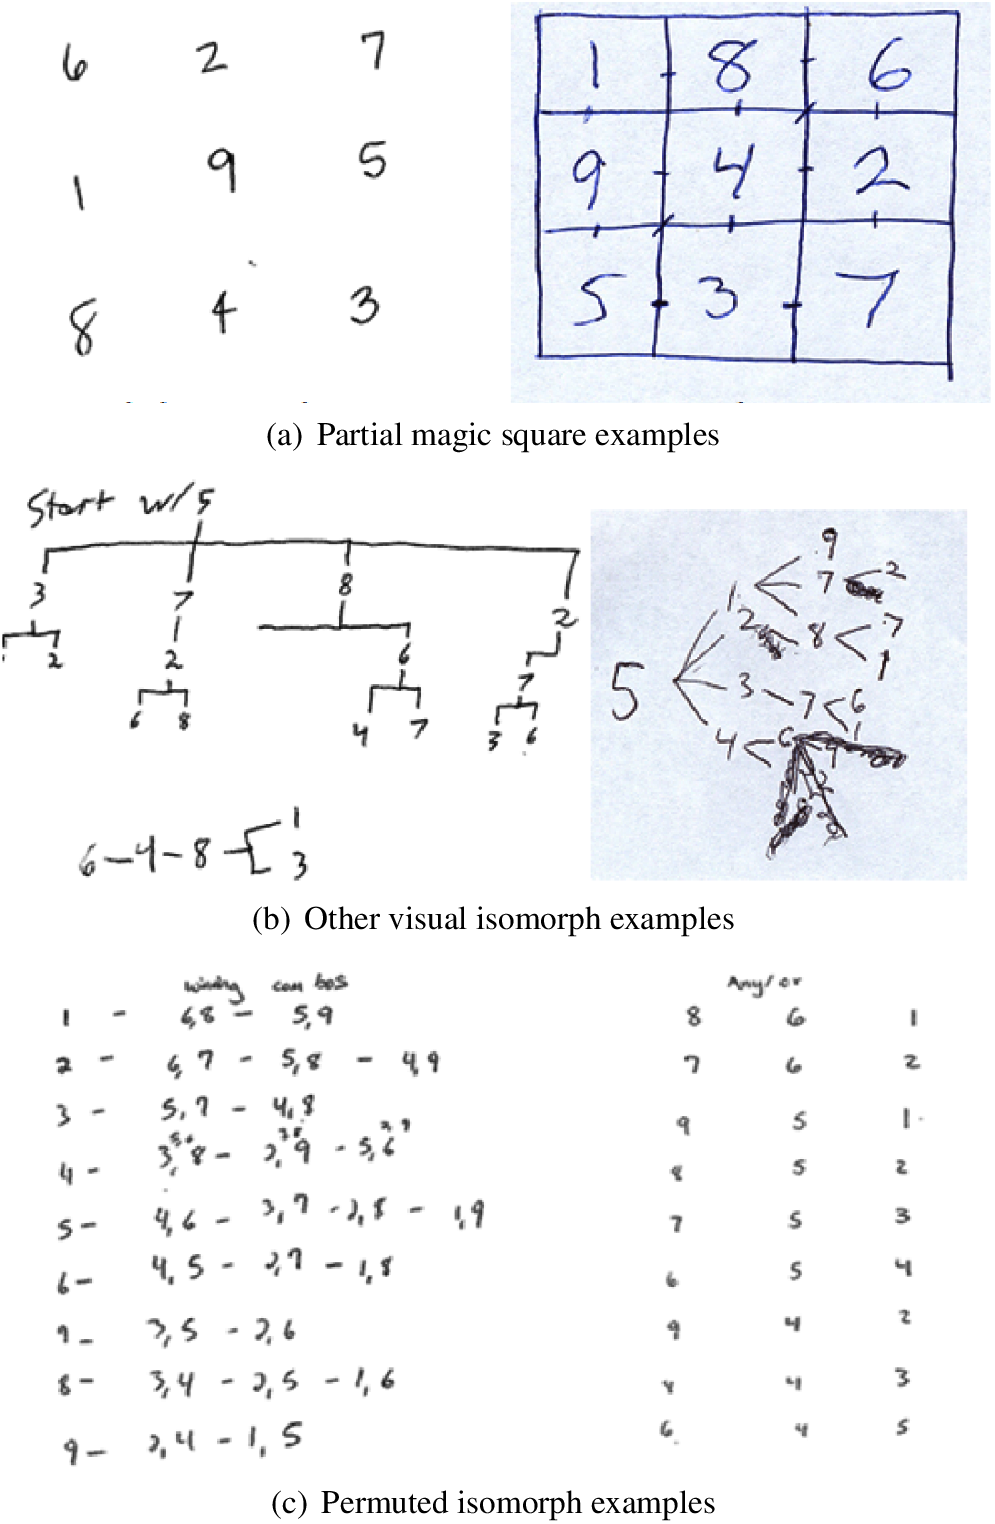 6 2 7
1 9 5
8 4 3
1 8 6
9 4 2
5 3 7
(a) Partial magic square examples
Start w/ 5
3 7 8 2
2 2 6 7
6 8 4 7 3 6
6-4-8 1
3
5
1 9
7 2
2 8 7
1
3 7 6
1
4 6 9
(b) Other visual isomorph examples
winning combos
1 - 6,8 - 5,9
2 - 6,7 - 5,8 - 4,9
3 - 5,7 - 4,8
4 - 3,8 - 2,9 - 5,6
5 - 4,6 - 3,7 - 2,8 - 1,9
6 - 4,5 - 2,7 - 1,8
7 - 3,5 - 2,6
8 - 3,4 - 2,5 - 1,6
9 - 2,4 - 1,5
8 6 1
7 6 2
9 5 1
8 5 2
7 5 3
6 5 4
9 4 2
4 3
6 4 5
(c) Permuted isomorph examples